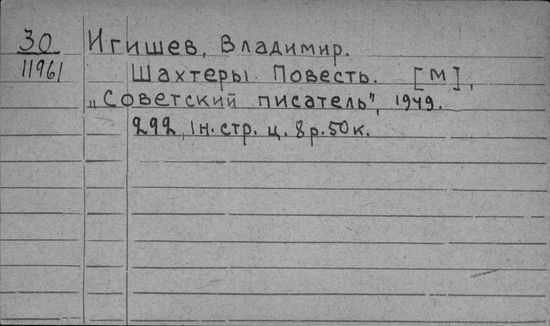 30 Игишев, Владимир.
11961 Шахтеры. Повесть. [М],
„Советский писатель", 1949.
292, 1н. стр. ц. 8р. 50к.